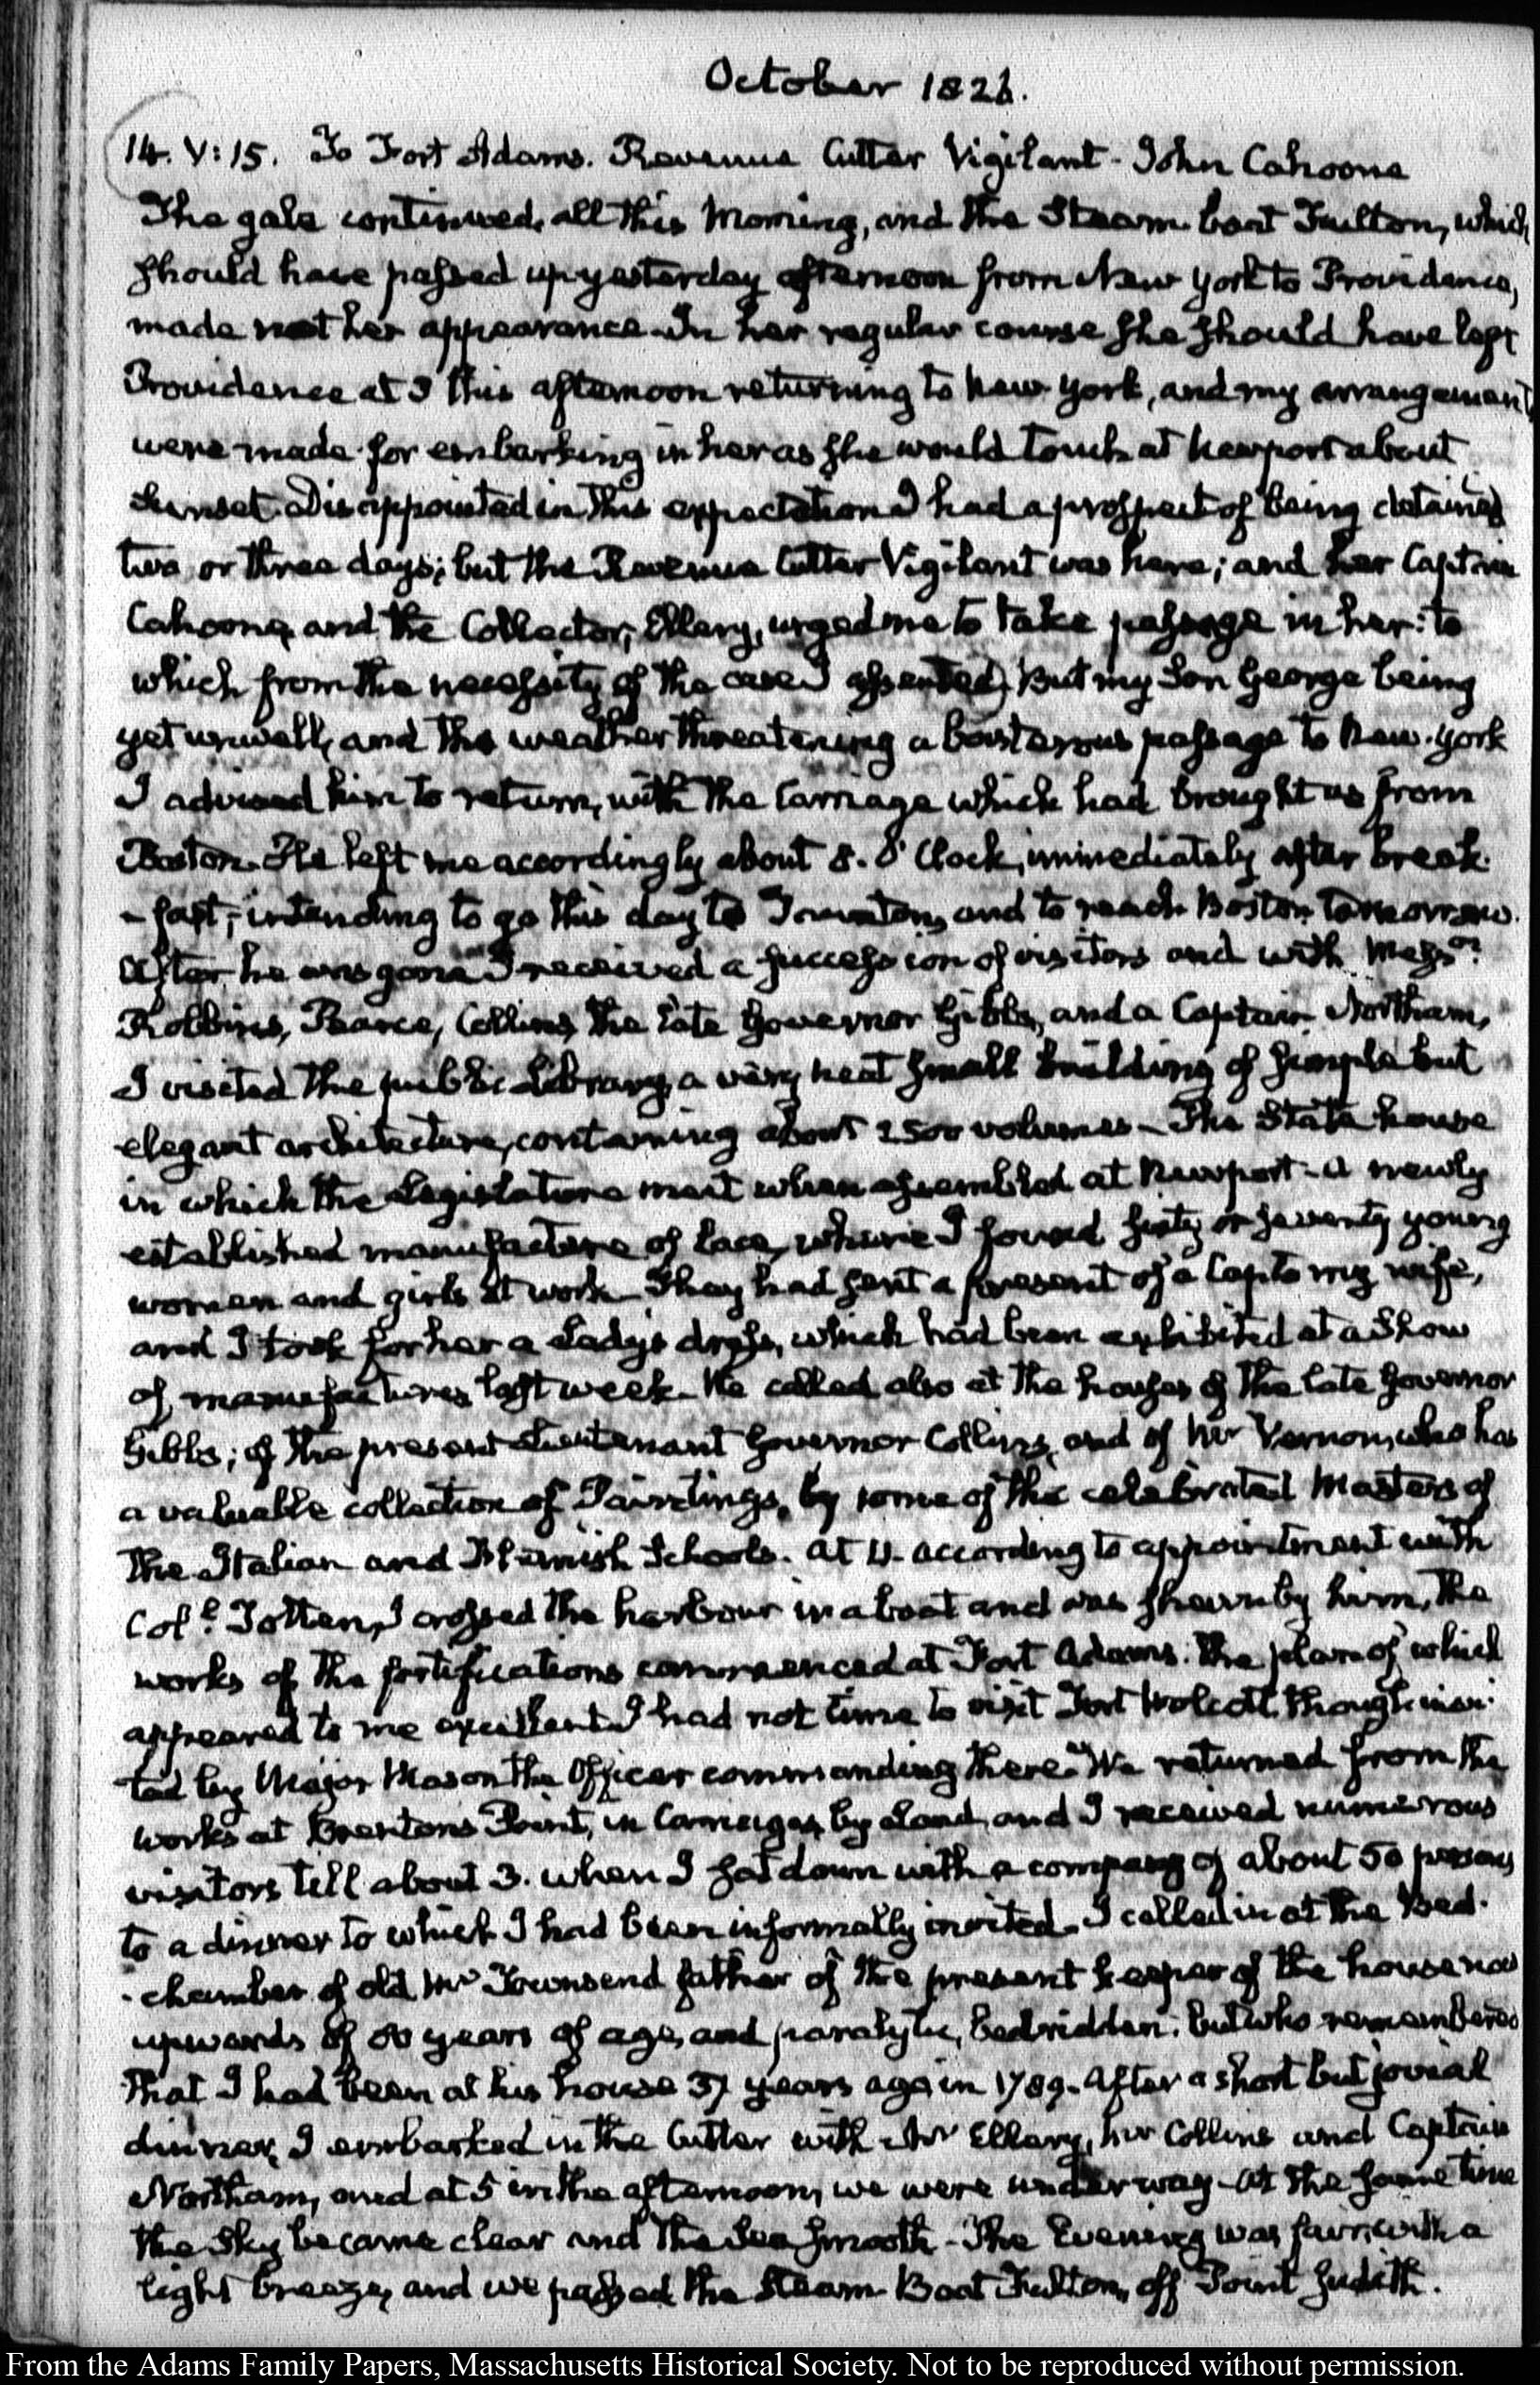 October 1826.
14. V:15. To Fort Adams. Revenue Cutter Vigilant - John Cahoone
The gale continued all this Morning, and the Steam-boat Fulton, which
should have passed up yesterday afternoon from New York to Providence,
made not her appearance. In her regular course she should have left
Providence at 3 this afternoon returning to New-York, and my arrangement
were made for embarking in her as she would touch at Newport about
Sunset. Disappointed in this expectation I had a prospect of being detained
two or three days; but the Revenue Cutter Vigilant was here; and her Captain
Cahoone, and the Collector, Ellery, urged me to take passage in her: to
which from the necessity of the case I assented. But my Son George being
yet unwell, and the weather threatening a boisterous passage to New-York
I advised him to return, with the Carriage which had brought us from
Boston. He left me accordingly about 8. O'Clock, immediately after break-
-fast, intending to go this day to Taunton, and to reach Boston tomorrow.
After he was gone I received a succession of visitors and with Messrs
Robbins, Pearce, Collins, the late Governor Gibbs, and a Captain Northam,
I visited the public Library, a very neat small building of simple but
elegant architecture, containing about 1500 volumes - The State-house
in which the Legislature meet when assembled at Newport - A newly
established manufacture of lace, where I found sixty or seventy young
women and girls at work. They had sent a present of a Cap to my wife,
and I took for her a Lady's dress, which had been exhibited at a Show
of manufactures last week. We called also at the houses of the late Governor
Gibbs; of the present Lieutenant Governor Collins, and of Mr Vernon, who has
a valuable collection of Paintings, by some of the celebrated Masters of
the Italian and Flemish Schools. At 11. according to appointment with
Coll. Totten, I crossed the harbour in a boat and was shewn by him, the
works of the fortifications commenced at Fort Adams. The plan of which
appeared to me excellent. I had not time to visit Fort Wolcott though invi-
ted by Major Mason the Officer commanding there. We returned from the
works at Brenton's Point, in Carriages, by land, and I received numerous
visitors till about 3. when I sat down with a company of about 50 persons
to a dinner to which I had been informally invited. I called in at the Bed-
-chamber of old Mr Townsend father of the present keeper of the house now
upwards of 80 years of age, and paralytic, bedridden: but who remembered
that I had been at his house 37 years ago in 1789. After a short but jovial
dinner, I embarked in the Cutter with Mr Ellery, Mr Collins and Captain
Northam, and at 5 in the afternoon, we were under way - At the same time
the Sky became clear and the Sea smooth - The Evening was fair, with a
light breeze, and we passed the Steam-Boat Fulton, off Point Judith.
From the Adams Family Papers, Massachusetts Historical Society. Not to be reproduced without permission.